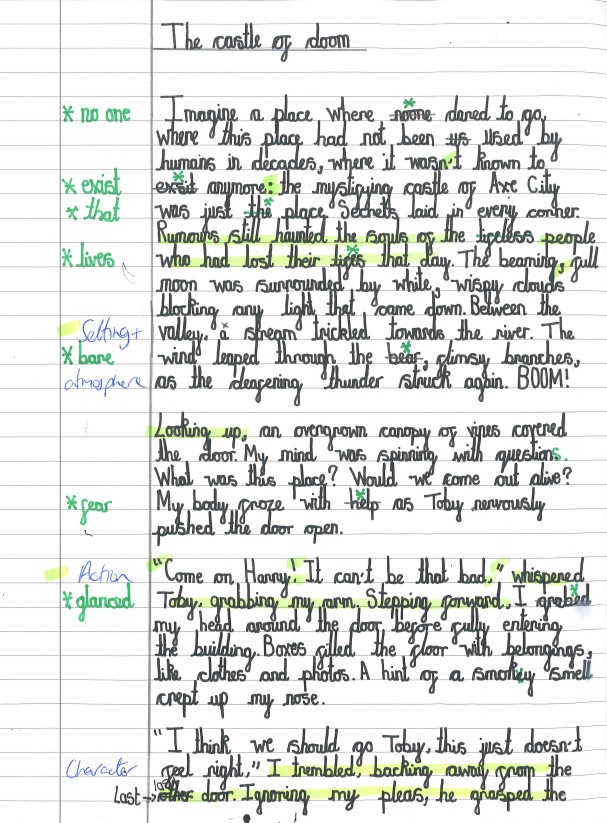 The castle of doom
* no one Imagine a place where * noone dared to go,
where this place had not been us used by
humans in decades, where it wasn't known to
* exist * exsit anymore: the mystifying castle of Axe City
* that was just the * place. Secrets laid in every corner.
Rumours still haunted the souls of the lifeless people
* lives who had lost their * lifes that day. The beaming, full
moon was surrounded by white, wispy clouds
blocking any light that came down. Between the
Setting + valley, a stream trickled towards the river. The
* bare wind leaped through the * bear, flimsy branches,
atmosphere as the deafening thunder struck again. BOOM!
Looking up, an overgrown canopy of vines covered
the door. My mind was spinning with questions.
What was this place? Would we come out alive?
* fear My body froze with * help as Toby nervously
pushed the door open.
Action "Come on, Harry! It can't be that bad," whispered
* glanced Toby, grabbing my arm. Stepping forward, I * grabed
my head around the door before fully entering
the building. Boxes filled the floor with belongings,
like clothes and photos. A hint of a smokey smell
crept up my nose.
"I think we should go Toby, this just doesn't
Character feel right," I trembled, backing away from the
Last → last other door. Ignoring my pleas, he grasped the